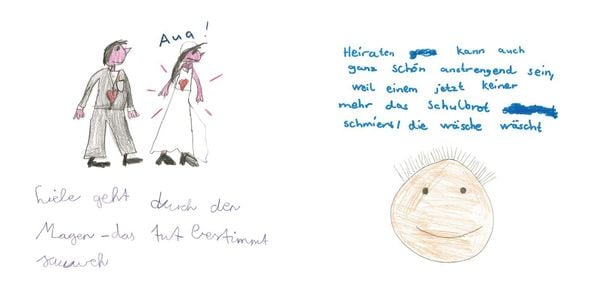 Aua!
Liebe geht durch den
Magen – das tut bestimmt
sauweh
Heiraten kann auch
ganz schön anstrengend sein,
weil einem jetzt keiner
mehr das Schulbrot
schmiert/ die wäsche wäscht